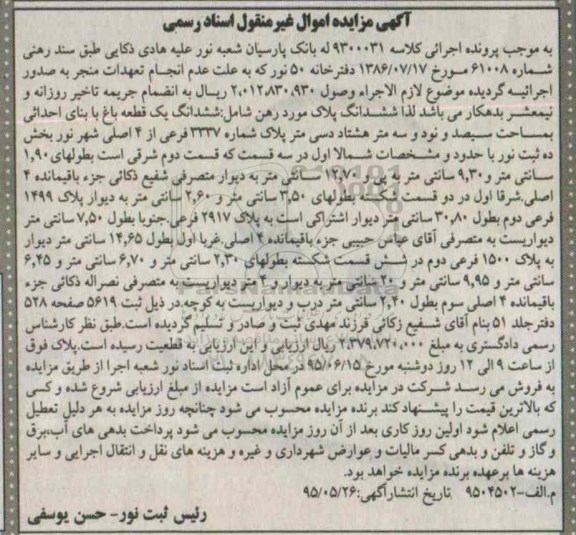 آگهی مزایده اموال غیرمنقول اسناد رسمی
به موجب پرونده اجرائی کلاسه ۹۳۰۰۰۳۱ له بانک پارسیان شعبه نور علیه هادی ذکایی طبق سند رهنی
شماره ۶۱۰۰۸ مورخ ۱۳۸۶/۰۷/۱۷ دفترخانه ۵۰ نور که به علت عدم انجام تعهدات منجر به صدور
اجرائیه گردیده موضوع لازم الاجراء وصول ۲،۰۱۲،۸۳۰،۹۳۰ ریال به انضمام جریمه تاخیر روزانه و
نیمعشر بدهکار می باشد لذا ششدانگ پلاک مورد رهن شامل:ششدانگ یک قطعه باغ با بنای احداثی
بمساحت سیصد و نود و سه متر هشتاد دسی متر پلاک شماره ۳۳۳۷ فرعی از ۴ اصلی شهر نور بخش
ده ثبت نور با حدود و مشخصات شمالا اول در سه قسمت که قسمت دوم شرقی است بطولهای ۱,۹۰
سانتی متر و ۹,۳۰ سانتی متر به پی و ۱۲,۷۰ سانتی متر به دیوار متصرفی شفیع ذکائی جزء باقیمانده ۴
اصلی.شرقا اول در دو قسمت شکسته بطولهای ۳,۵۰ سانتی متر و ۲,۶۰ سانتی متر به دیوار پلاک ۱۴۹۹
فرعی دوم بطول ۳۰,۸۰ سانتی متر دیوار اشتراکی است به پلاک ۲۹۱۷ فرعی.جنوبا بطول ۷,۵۰ سانتی متر
دیواریست به متصرفی آقای عباس حبیبی جزء باقیمانده ۴ اصلی.غربا اول بطول ۱۴,۶۵ سانتی متر دیوار
به پلاک ۱۵۰۰ فرعی دوم در شش قسمت شکسته بطولهای ۲,۳۰ سانتی متر و ۶,۷۰ سانتی متر و ۶,۴۵
سانتی متر و ۹,۹۵ سانتی متر و ۲۰ سانتی متر به دیوار و ۴ متر دیواریست به متصرفی نصراله ذکائی جزء
باقیمانده ۴ اصلی سوم بطول ۲,۴۰ سانتی متر درب و دیواریست به کوچه.در ذیل ثبت ۵۶۱۹ صفحه ۵۲۸
دفترجلد ۵۱ بنام آقای شفیع زکائی فرزند مهدی ثبت و صادر و تسلیم گردیده است.طبق نظر کارشناس
رسمی دادگستری به مبلغ ۲،۳۷۹،۷۲۰،۰۰۰ ریال ارزیابی و این ارزیابی به قطعیت رسیده است.پلاک فوق
از ساعت ۹ الی ۱۲ روز دوشنبه مورخ ۹۵/۰۶/۱۵ در محل اداره ثبت اسناد نور شعبه اجرا از طریق مزایده
به فروش می رسد شرکت در مزایده برای عموم آزاد است مزایده از مبلغ ارزیابی شروع شده و کسی
که بالاترین قیمت را پیشنهاد کند برنده مزایده محسوب می شود چنانچه روز مزایده به هر دلیل تعطیل
رسمی اعلام شود اولین روز کاری بعد از آن روز مزایده محسوب می شود پرداخت بدهی های آب،برق
و گاز و تلفن و بدهی کسر مالیات و عوارض شهرداری و غیره و هزینه های نقل و انتقال اجرایی و سایر
هزینه ها برعهده برنده مزایده خواهد بود.
م.الف-۹۵۰۴۵۰۲ تاریخ انتشارآگهی:۹۵/۰۵/۲۶
رئیس ثبت نور- حسن یوسفی